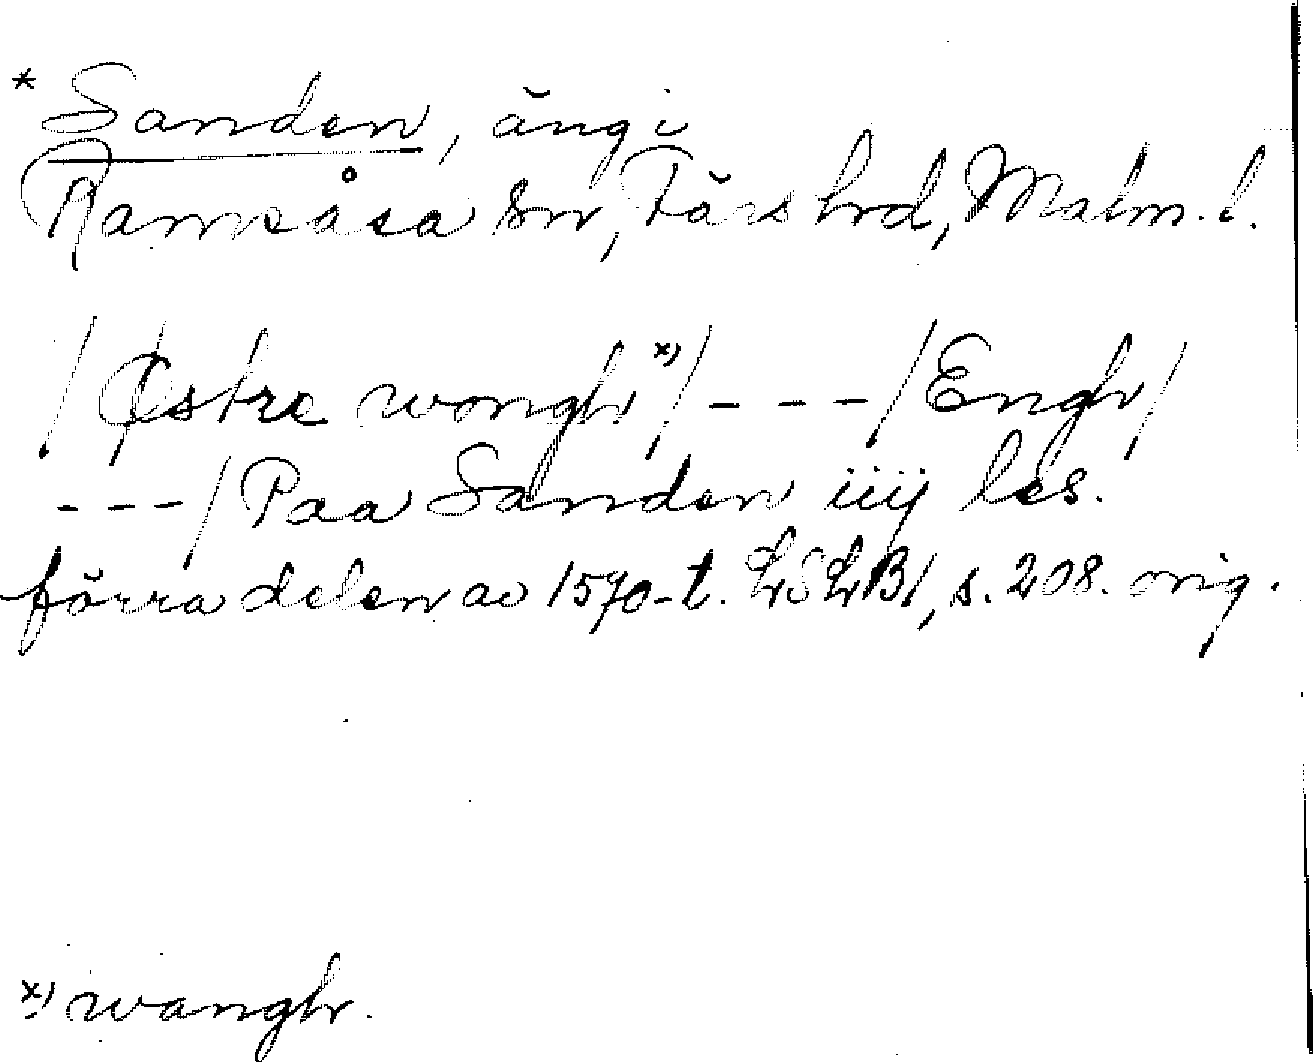 * Sanden, äng i
Ramsåsa sn, Färs hrd, Malm. l.
/Østre wongh x)/ - - - /Engh/
- - - / Paa Sanden iiij les.
förra delen av 1570-t. LSLB1, s. 208. orig.
x) wangh.